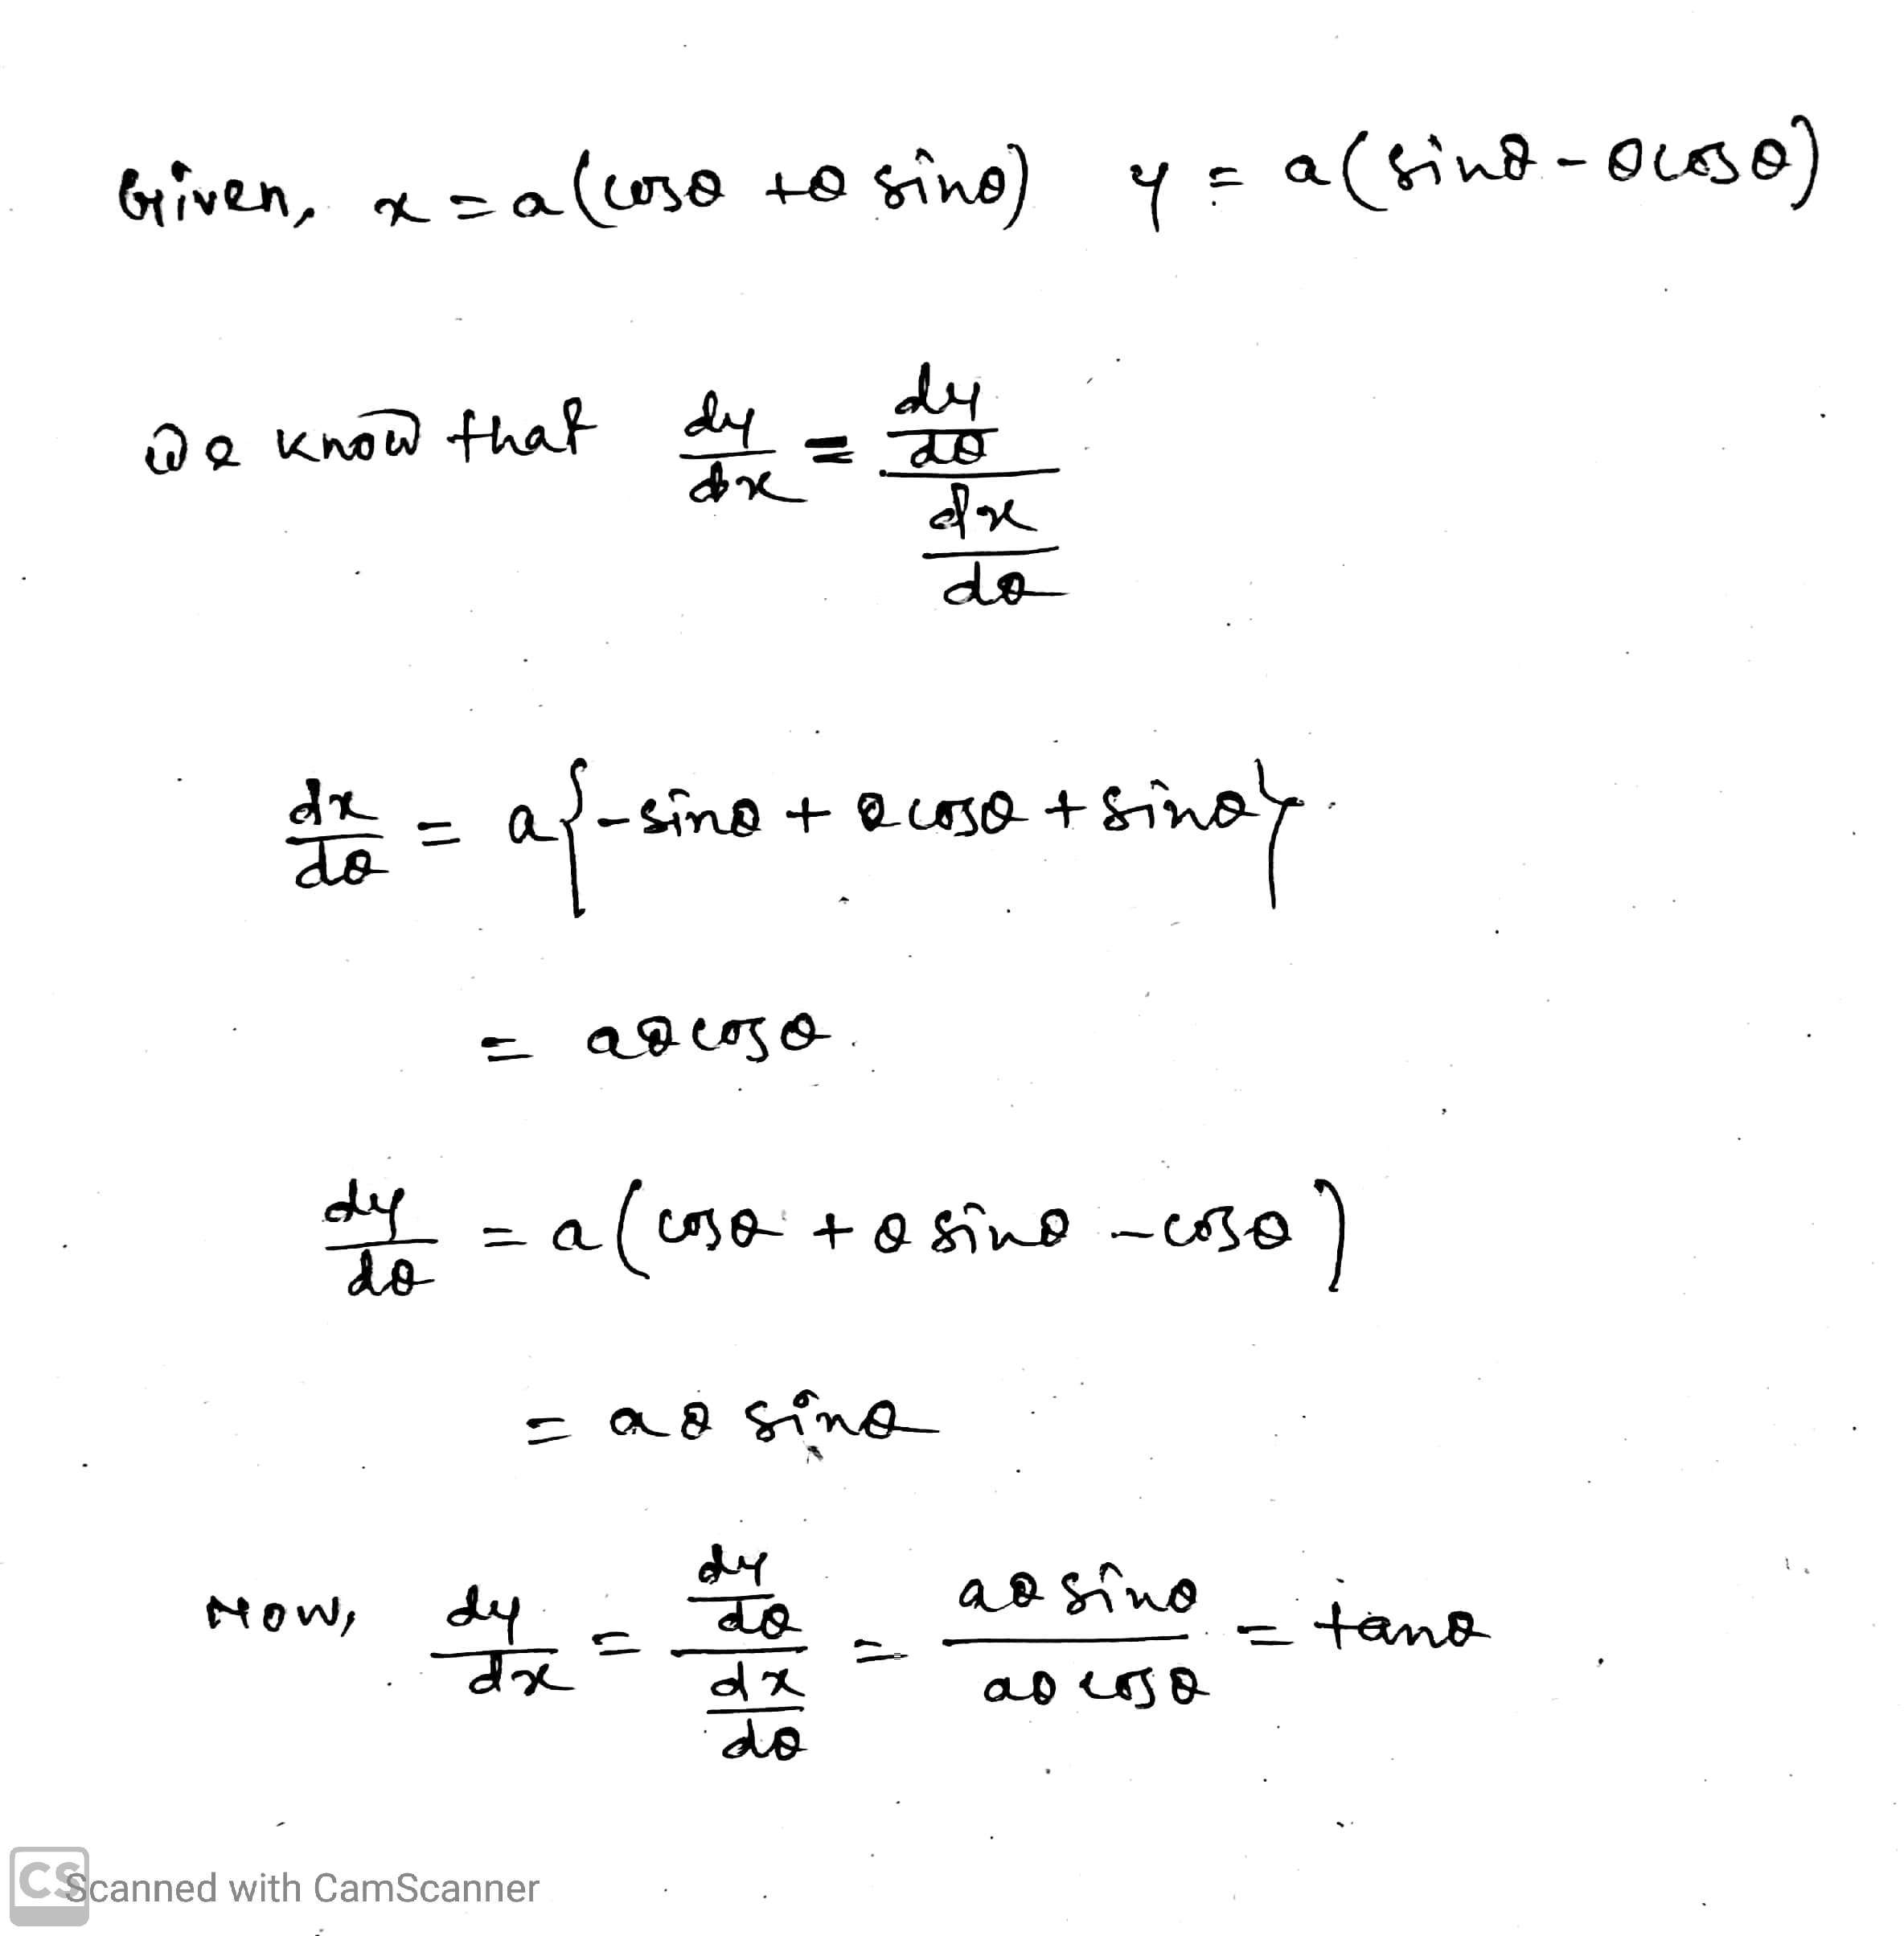 Given, x = a(cosθ + θ sinθ) y = a(sinθ - θcosθ)
We know that dy/dx = (dy/dθ)/(dx/dθ)
dx/dθ = a{-sinθ + θcosθ + sinθ}
= aθcosθ.
dy/dθ = a(cosθ + θ sinθ - cosθ)
= aθ sinθ
Now, dy/dx = (dy/dθ)/(dx/dθ) = aθ sinθ/aθ cosθ = tanθ
CS Scanned with CamScanner